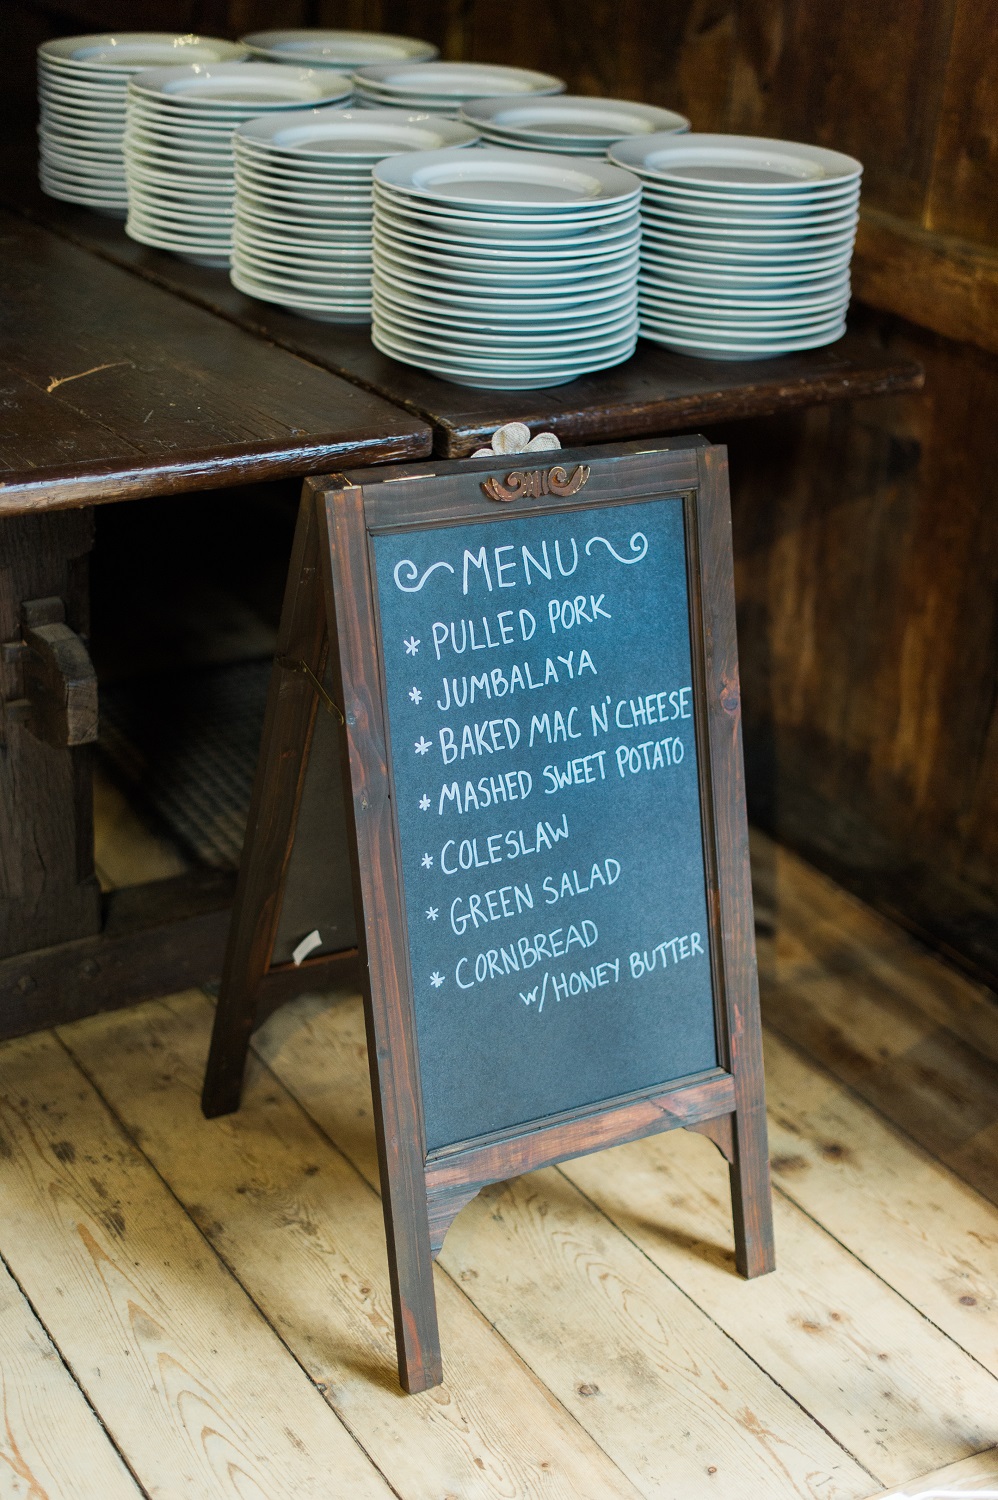 MENU
* PULLED PORK
* JUMBALAYA
* BAKED MAC N' CHEESE
* MASHED SWEET POTATO
* COLESLAW
* GREEN SALAD
* CORNBREAD
w/ HONEY BUTTER